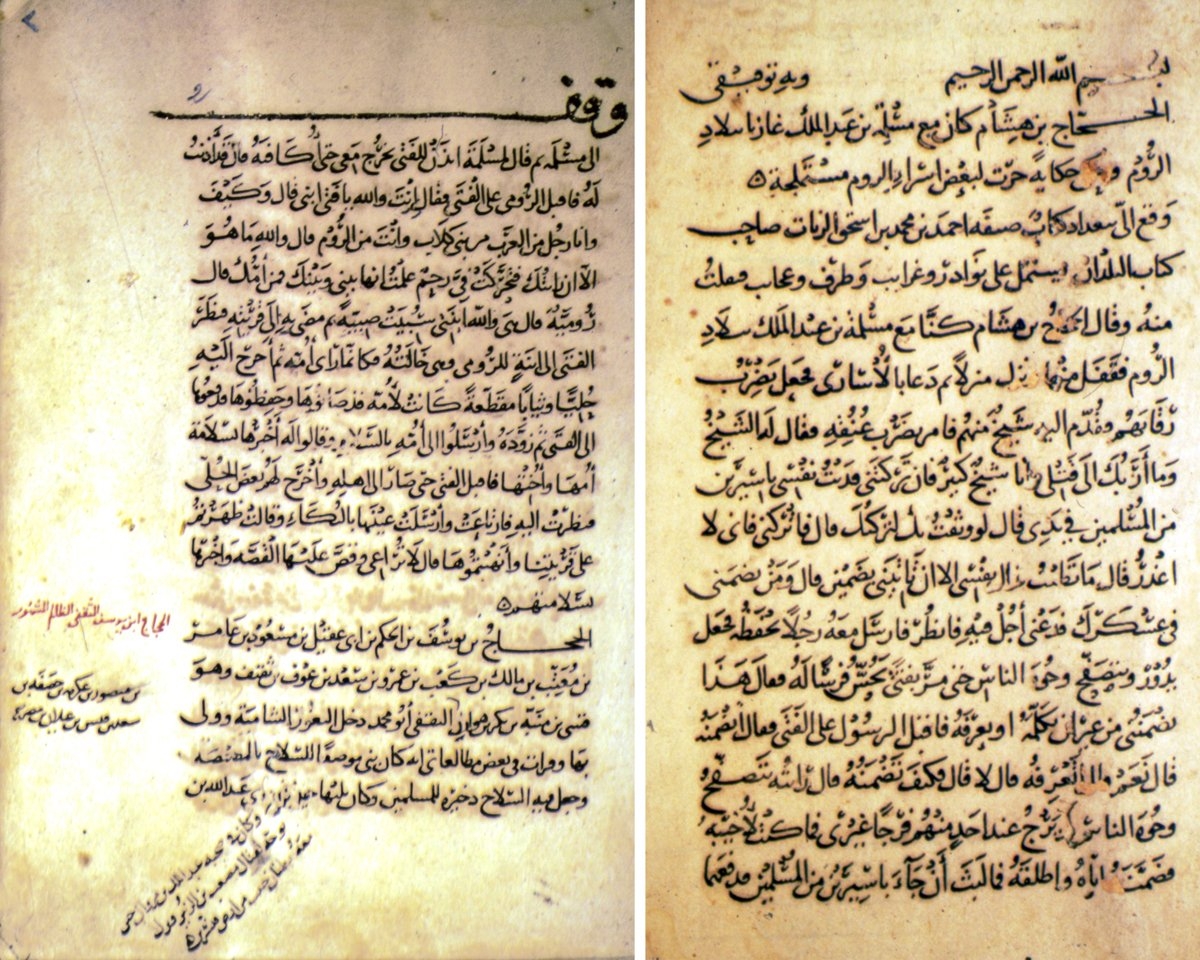 بسم الله الرحمن الرحيم وبه توفيقي
الحجاج بن هشام كان مع مسلمة بن عبد الملك غازيا بلاد
الروم وحكى حكاية جرت لبعض اسراء الروم مستملحة ه
وقع الي ببغداد كتاب صنفه احمد بن محمد بن اسحق الزيات صاحب
كتاب البلدان يشتمل على نوادر وغرايب وطرف وعجايب فنقلت
منه وقال الحجاج بن هشام كنا مع مسلمة بن عبد الملك ببلاد
الروم فقفل منها نزل منزلا ثم دعا بالأسارى فجعل يضرب
رقابهم فقدم اليه شيخ منهم فامر بضرب عنقه فقال له الشيخ
وما أربك الى قتلي انا شيخ كبير فان تركتني فديت نفسي باسيرين
من المسلمين في يدي قال لو وثقت بك لتركتك قال فاتركني فاني لا
اغدر قال ما تطيب نفسي الا ان تأتيني بضمين قال ومن يضمنني
في عسكرك فدعني أجل فيه فانظر فارسل معه رجلا يحفظه فجعل
يدور ويتصفح وجوه الناس حتى مر بفتى يحس فرسا له فقال هذا
يضمنني من غير ان يكلمه او يعرفه فاقبل الرسول على الفتى فقال اتضمنه
قال نعم قال اتعرفه قال لا قال فكيف تضمنه قال رأيته تتصفح
وجوه الناس لم يرج عند احد منهم فرجا غيري فما كنت لأخيبه
فضمنه اياه واطلقه فما لبث أن جاء باسيرين من المسلمين فدفعهما
وقف
الى مسلمة ثم قال لمسلمة ائذن للفتى يخرج معي حتى أكافئه قال قد أذنت
له فاقبل الرومي على الفتى فقال انت والله يا فتى ابني قال وكيف
وانا رجل من العرب من بني كلاب وانت من الروم قال والله ما هو
الا ان رأيتك فتحركت في رحم علمت انها بيني وبينك فمن أمك قال
رومية قال هي والله ابنتي سبيت صبية ثم مضى به الى قريته فنظر
الفتى الى ابنة للرومي وهي خالته فكانما رأى أمه ثم أخرج اليه
حليا وثيابا مقطعة كانت لأمه وحفظوها ودفعوها
الى الفتى ثم زوده وأرسلوا الى أمه بالسلام وقالوا له أخبرها بسلامة
أمها وأختها فاقبل الفتى حتى صار الى اهله وأخرج لهم بعض الحلي
فنظرت اليه فارتاعت وأرسلت عينها بالبكاء وقالت ظهرتم
على قريتنا وأتهمتموها قال لا تراعي وقص عليها القصة واخبرها
بسلامتهم ه
الحجاج بن يوسف بن الحكم بن ابي عقيل بن مسعود بن عامر
بن معتب بن مالك بن كعب بن عمرو بن سعد بن عوف بن ثقيف وهو
قسي بن منبه بن بكر بن هوازن الثقفي أبو محمد دخل الثغور الشامية وولي
بها وقرات في بعض مطالعاتي انه كان بنى موضع السلاح بالمصيصة
وجعل فيه السلاح ذخيرة للمسلمين وكان يليها عبد الله بن
الحجاج ابن يوسف الثقفي الظالم المشهور
بن منصور بن عكرمه بن خصفه بن
سعد بن قيس بن عيلان بن مضر